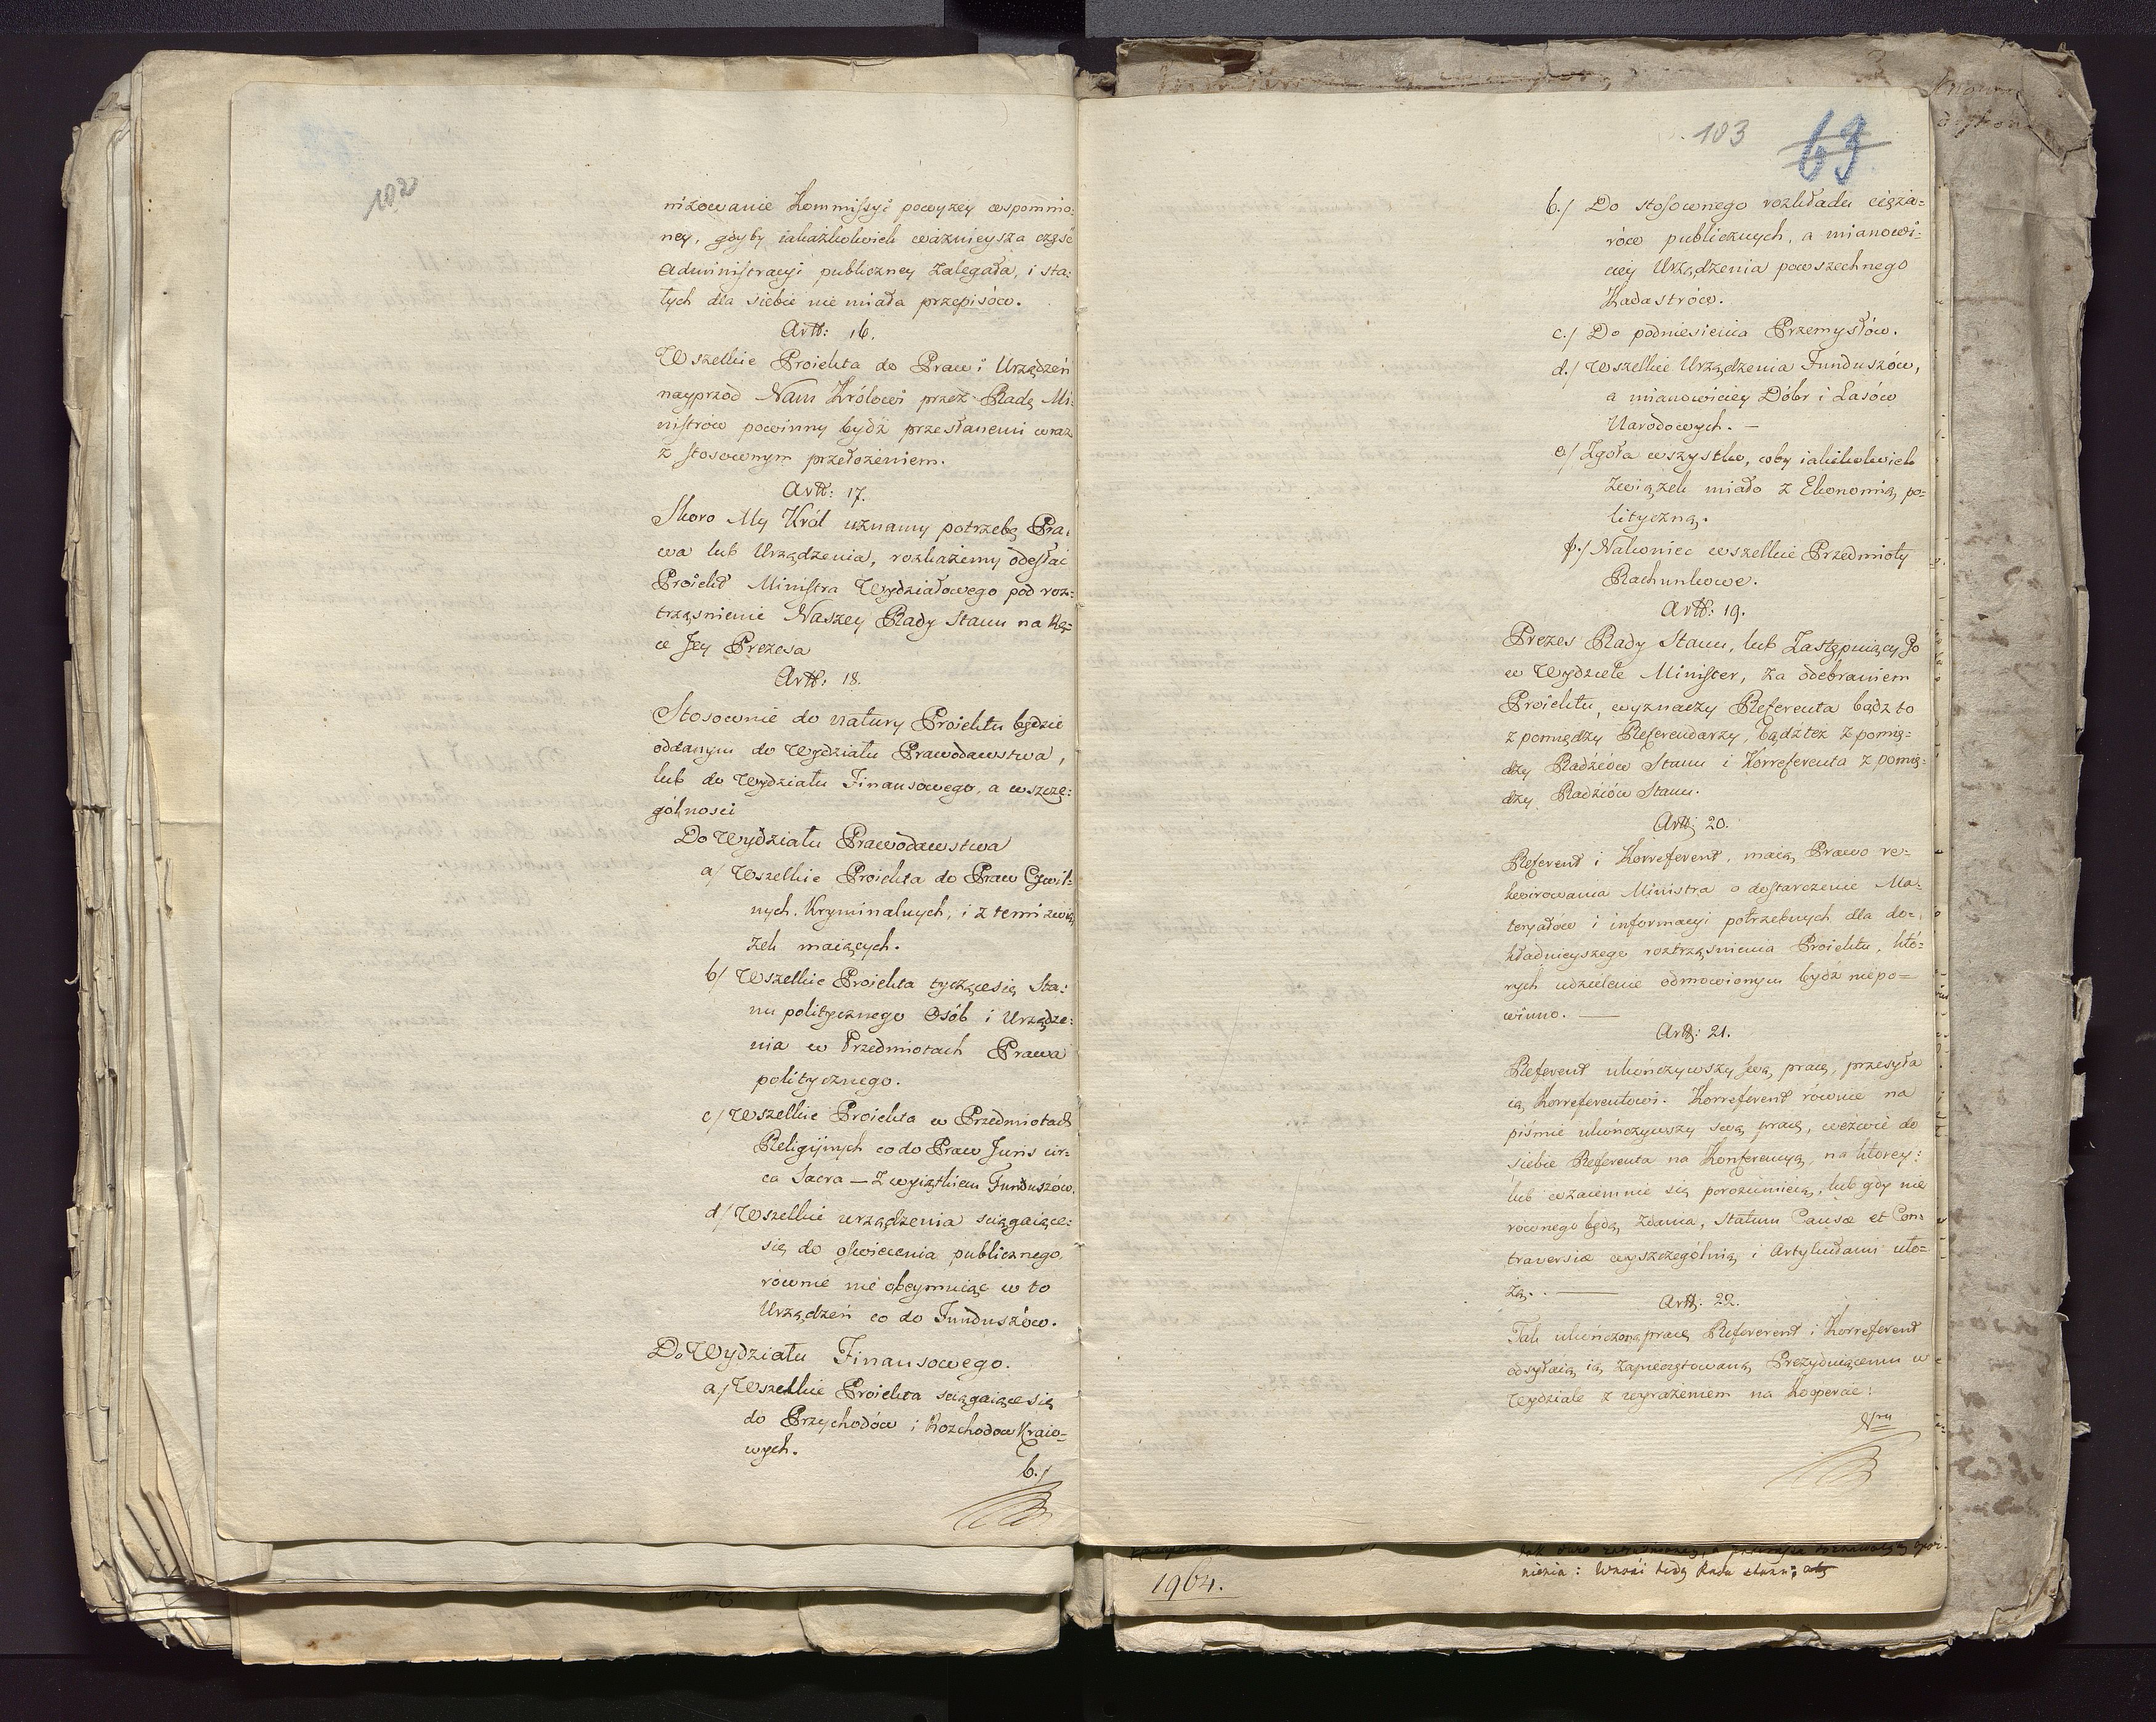 102
nizowanie Kommissyi powyzey wspomnio:
ney, gdyby iakażkolwiek ważnieysza część
Administracyi publiczney zalegała, i sta:
łych dla siebie nie miała przepisów.
Artt: 16.
Wszelkie Proiekta do Praw i Urządzeń
nayprzod Nam Królowi przez Radę Mi:
nistrów powinny bydź przesłanemi wraz
z stosownym przełożeniem.
Artt: 17.
Skoro My Król uznamy potrzebę Pra:
wa lub Urządzenia, rozkażemy odesłać
Proiekt Ministra Wydziałowego pod roz:
trząśnienie Naszey Rady Stanu na Rę:
ce Jey Prezesa
Artt: 18.
Stosownie do natury Proiektu będzie
oddanym do Wydziału Prawodawstwa,
lub do Wydziału Finansowego, a w szcze:
gólnosci
Do Wydziału Prawodawstwa
a/ Wszelkie Proiekta do Praw Cywil:
nych. Kryminalnych, i z temi zwią
zek maiących.
b/ Wszelkie Proiekta tyczącesię Sta:
nu politycznego Osób i Urządze:
nia w Przedmiotach Prawa
politycznego.
c/ Wszelkie Proiekta w Przedmiotach
Religijnych co do Praw Juris cir:
ca Sacra — Z wyiątkiem Funduszów.
d/ Wszelkie urządzenia sciągaiące:
się do oświecenia publicznego,
równie nie obeymuiąc w to
Urządzeń co do Funduszów.
Do Wydziału Finansowego.
a/ Wszelkie Proiekta sciągaiącesię
do Przychodów i Rozchodow Kraio=
wych.
b./
103
69
b./ Do stosownego rozkładu cięża=
rów publicznych, a mianowi:
ciey Urządzenia powszechnego
Kadastrów.
c./ Do podniesienia Przemysłów.
d./ Wszelkie Urządzenia Funduszów,
a mianowiciey Dóbr i Lasów
Narodowych. —
e/ Zgoła wszystko, coby iakikolwiek
Związek miało z Ekonomią po=
lityczną.
f./ Nakoniec wszelkie Przedmioty
Rachunkowe.
Artt: 19.
Prezes Rady Stanu, lub Zastępuiący Go
w Wydziele Minister, za odebraniem
Proiektu, wyznaczy Referenta bądz to
z pomiędzy Referendarzy, bądźtez z pomię=
dzy Radzców Stanu i Korreferenta z pomię=
dzy Radzców Stanu.
Artt: 20.
Referent i Korreferent, maią Prawo re=
kwirowania Ministra o dostarczenie Ma=
teryałów i informacyi potrzebnych dla do=
kładnieyszego roztrząśnienia Proiektu, któ=
rych udzielenie odmowionym bydź niepo=
winno. —
Artt: 21.
Referent ukończywszy swą pracę, przesyła
ią Korreferentowi. Korreferent równie na
piśmie ukończywszy swą pracę, wezwie do
siebie Referenta na Konferencyą, na ktorey:
lub wzaiemnie się porozumieią, lub gdy nie
rownego będą zdania, Statum Causæ et Con=
traversiæ wyszczególnią i Artykułami uło=
żą. —
Artt: 22.
Tak ukończoną pracę Refererent i Korreferent
odsyłaią ią zapieczętowaną Prezyduiącemu w
Wydziale z wyrażeniem na Kopercie:
Nru
1964.